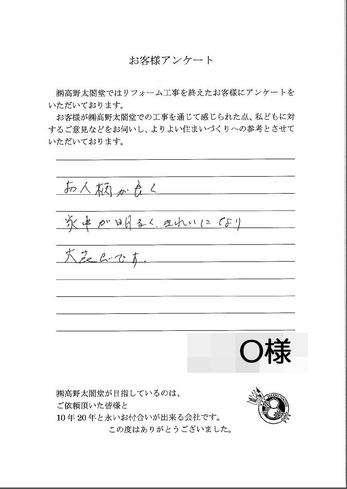 お客様アンケート
㈱高野太閤堂ではリフォーム工事を終えたお客様にアンケートを
いただいております。
お客様が㈱高野太閤堂での工事を通じて感じられた点、私どもに対
するご意見などをお伺いし、よりよい住まいづくりへの参考とさせて
いただいております。
お人柄が良く
家中が明るく、きれいになり
大喜びです。
O様
㈱高野太閤堂が目指しているのは、
ご依頼頂いた皆様と
10年20年と永いお付合いが出来る会社です。
この度はありがとうございました。